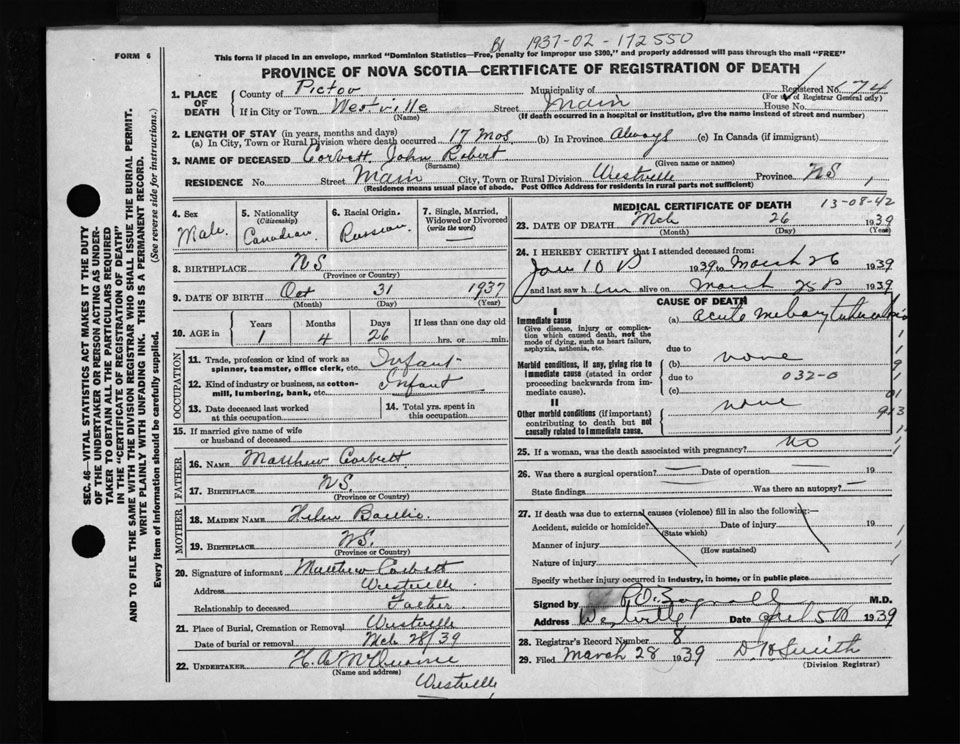 Bl 1937-02-172550
FORM 6
This form if placed in an envelope, marked "Dominion Statistics—Free, penalty for improper use $300," and properly addressed will pass through the mail "FREE"
PROVINCE OF NOVA SCOTIA—CERTIFICATE OF REGISTRATION OF DEATH
1. PLACE OF DEATH
County of Pictou Municipality of Registered No. 674
(For use of Registrar General only)
If in City or Town Westville Street Main House No.
(Name) (If death occurred in a hospital or institution, give the name instead of street and number)
2. LENGTH OF STAY (in years, months and days)
(a) In City, Town or Rural Division where death occurred 17 Mos (b) In Province Always (c) In Canada (if immigrant)
3. NAME OF DECEASED Corbett John Robert
(Surname) (Given name or names)
RESIDENCE No. Street Main City, Town or Rural Division Westville Province NS
(Residence means usual place of abode. Post Office Address for residents in rural parts not sufficient)
4. Sex Male
5. Nationality (Citizenship) Canadian
6. Racial Origin. Russian
7. Single, Married, Widowed or Divorced (write the word) —
8. BIRTHPLACE NS
(Province or Country)
9. DATE OF BIRTH Oct 31 1937
(Month) (Day) (Year)
10. AGE in Years Months Days If less than one day old
1 4 26 hrs. or min.
OCCUPATION
11. Trade, profession or kind of work as spinner, teamster, office clerk, etc. Infant
12. Kind of industry or business, as cotton-mill, lumbering, bank, etc. Infant
13. Date deceased last worked at this occupation
14. Total yrs. spent in this occupation
15. If married give name of wife or husband of deceased
FATHER
16. NAME Matthew Corbett
17. BIRTHPLACE NS
(Province or Country)
MOTHER
18. MAIDEN NAME Helen Baillie
19. BIRTHPLACE NS.
(Province or Country)
20. Signature of informant Matthew Corbett
Address Westville
Relationship to deceased Father
21. Place of Burial, Cremation or Removal Westville
Date of burial or removal Mch 28/39
22. UNDERTAKER
(Name and address)
Westville
MEDICAL CERTIFICATE OF DEATH 13-08-42
23. DATE OF DEATH Mch 26 1939
(Month) (Day) (Year)
24. I HEREBY CERTIFY that I attended deceased from:
Jan 10 1939 to March 26 1939
and last saw him alive on March 25 1939
CAUSE OF DEATH
I
Immediate cause
Give disease, injury or complication which caused death, not the mode of dying, such as heart failure, asphyxia, asthenia, etc.
(a) Acute
due to
Morbid conditions, if any, giving rise to immediate cause (stated in order proceeding backwards from immediate cause).
(b) none
due to 032-0
(c)
II
Other morbid conditions (if important) contributing to death but not causally related to immediate cause.
none
25. If a woman, was the death associated with pregnancy? no
26. Was there a surgical operation? — Date of operation — 19
State findings Was there an autopsy? —
27. If death was due to external causes (violence) fill in also the following:—
Accident, suicide or homicide? Date of injury 19
(State which)
Manner of injury
(How sustained)
Nature of injury
Specify whether injury occurred in industry, in home, or in public place
Signed by M.D.
Address Westville Date April 5th 1939
28. Registrar's Record Number 8
29. Filed March 28 1939 D. H. Smith
(Division Registrar)
SEC. 46—VITAL STATISTICS ACT MAKES IT THE DUTY
OF THE UNDERTAKER OR PERSON ACTING AS UNDER-
TAKER TO OBTAIN ALL THE PARTICULARS REQUIRED
IN THE "CERTIFICATE OF REGISTRATION OF DEATH"
AND TO FILE THE SAME WITH THE DIVISION REGISTRAR WHO SHALL ISSUE THE BURIAL PERMIT.
WRITE PLAINLY WITH UNFADING INK. THIS IS A PERMANENT RECORD.
Every item of Information should be carefully supplied. (See reverse side for instructions.)